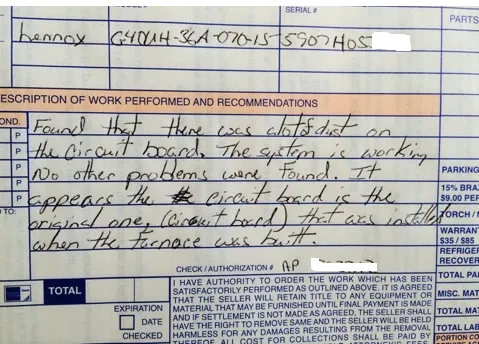 SERIAL #
PARTS
Lennox G40UH-36A-070-15 5907H05
DESCRIPTION OF WORK PERFORMED AND RECOMMENDATIONS
OND.
P
P
P
P
P
D TO:
Found that there was alotofdust on
the circuit board. The system is working
No other problems were found. It
appears the circuit board is the
original one, (circuit board) that was installed
when the furnace was built.
PARKING
15% BRAZ
$9.00 PER
TORCH / N
WARRANT
$35 / $85
REFRIGER
RECOVER
TOTAL PA
MISC. MAT
TOTAL MAT
TOTAL LAB
PORTION CO
CHECK / AUTHORIZATION # AP
TOTAL
EXPIRATION
DATE
CHECKED
I HAVE AUTHORITY TO ORDER THE WORK WHICH HAS BEEN
SATISFACTORILY PERFORMED AS OUTLINED ABOVE. IT IS AGREED
THAT THE SELLER WILL RETAIN TITLE TO ANY EQUIPMENT OR
MATERIAL THAT MAY BE FURNISHED UNTIL FINAL PAYMENT IS MADE
AND IF SETTLEMENT IS NOT MADE AS AGREED, THE SELLER SHALL
HAVE THE RIGHT TO REMOVE SAME AND THE SELLER WILL BE HELD
HARMLESS FOR ANY DAMAGES RESULTING FROM THE REMOVAL
THEREOF. ALL COST FOR COLLECTIONS SHALL BE PAID BY